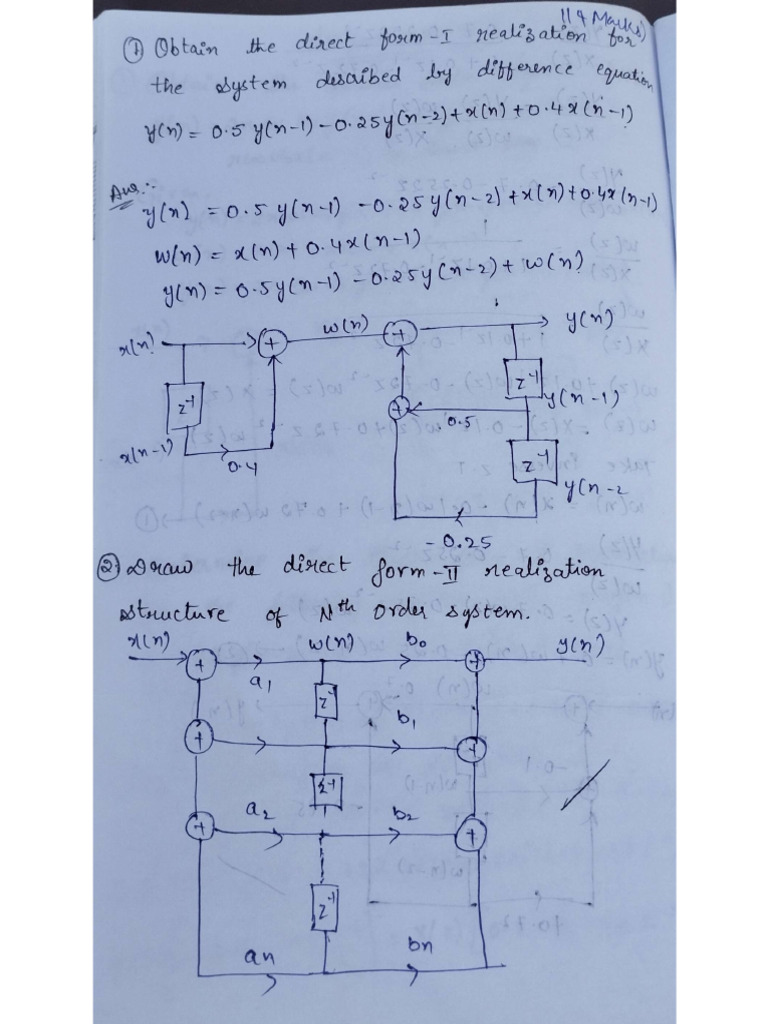 (14 Marks)
① Obtain the direct form-I realization for
the system described by difference equation
y(n) = 0.5 y(n-1) - 0.25y(n-2) + x(n) + 0.4x(n-1)
Ans:-
y(n) = 0.5 y(n-1) - 0.25y(n-2) + x(n) + 0.4x(n-1)
w(n) = x(n) + 0.4x(n-1)
y(n) = 0.5y(n-1) - 0.25y(n-2) + w(n)
x(n) + w(n) + y(n)
z⁻¹ z⁻¹
y(n-1)
+ 0.5
x(n-1) 0.4 z⁻¹
y(n-2
-0.25
② Draw the direct form-II realization
structure of Nth order system.
x(n) w(n) b₀ y(n)
+ a₁ +
z⁻¹ b₁
+ +
z⁻¹
a₂ b₂
+ +
z⁻¹
an bn